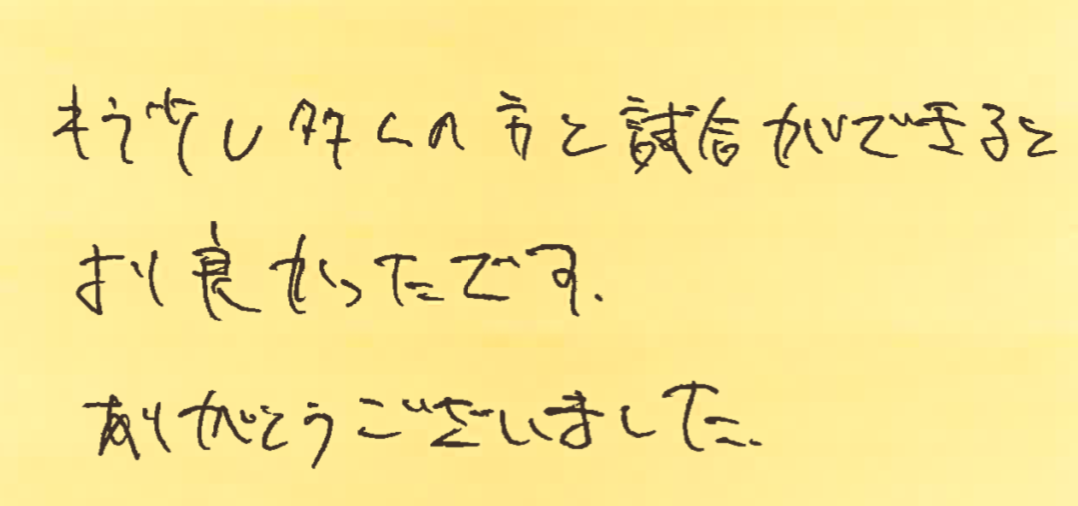 もう少し多くの方と試合ができると
より良かったです.
ありがとうございました.